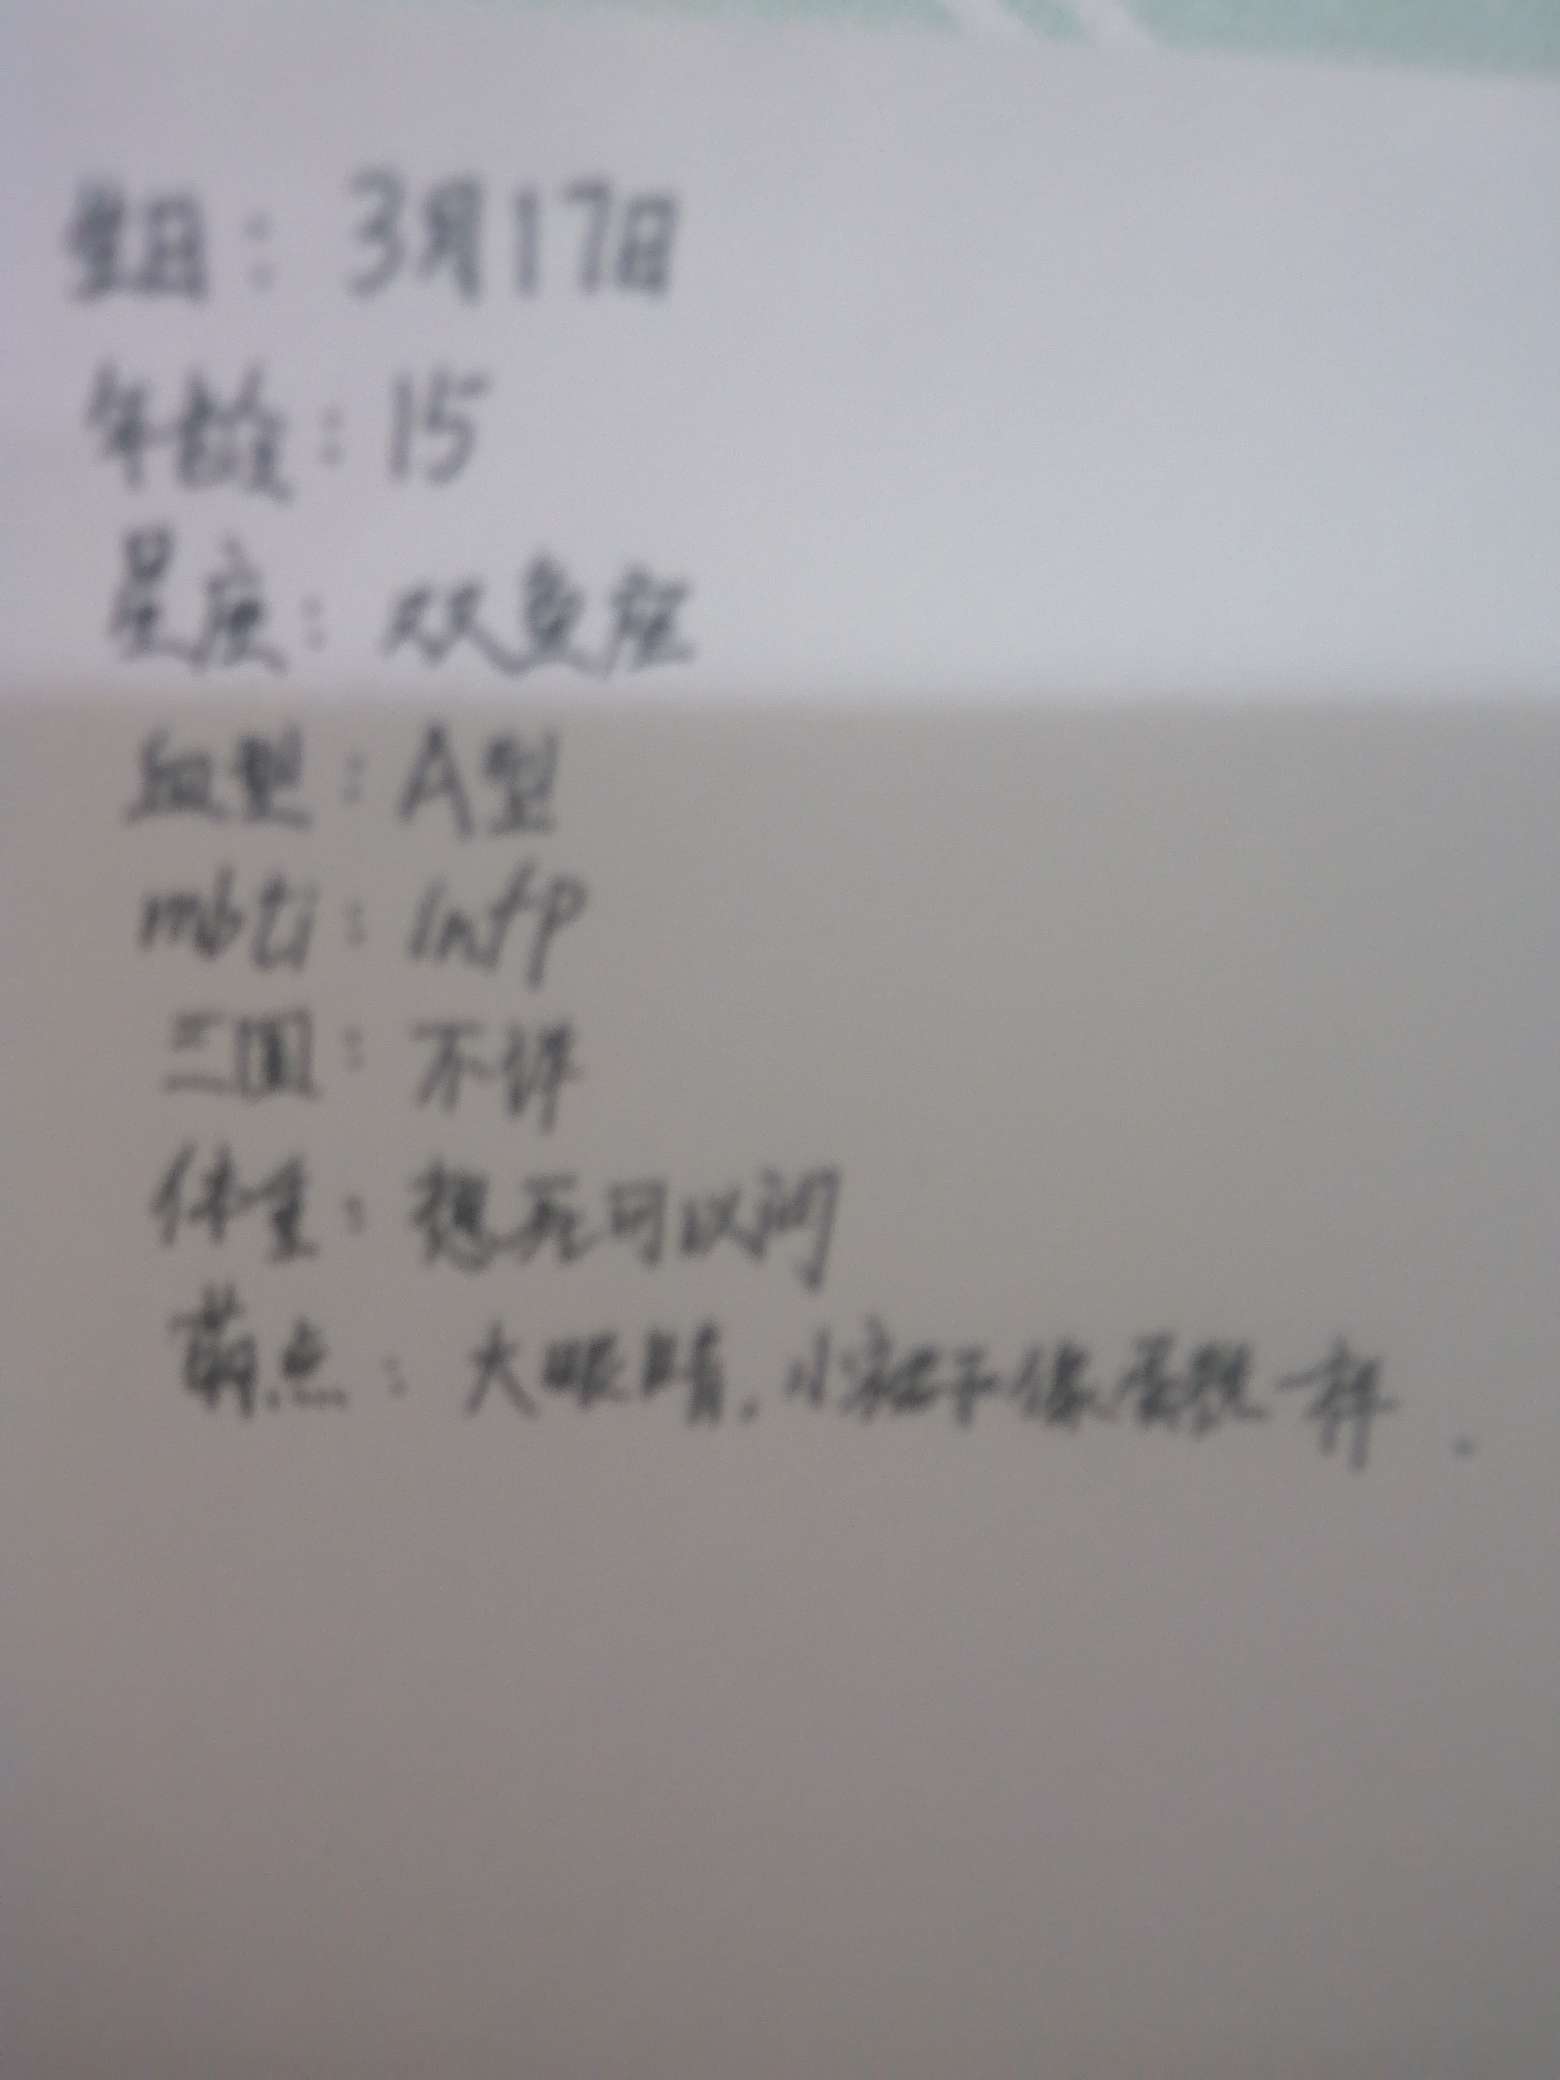 生日：3月17日
年龄：15
星座：双鱼座
血型：A型
mbti：infp
三围：不详
体重：想死可以问
萌点：大眼睛，小裙子像蛋糕一样．